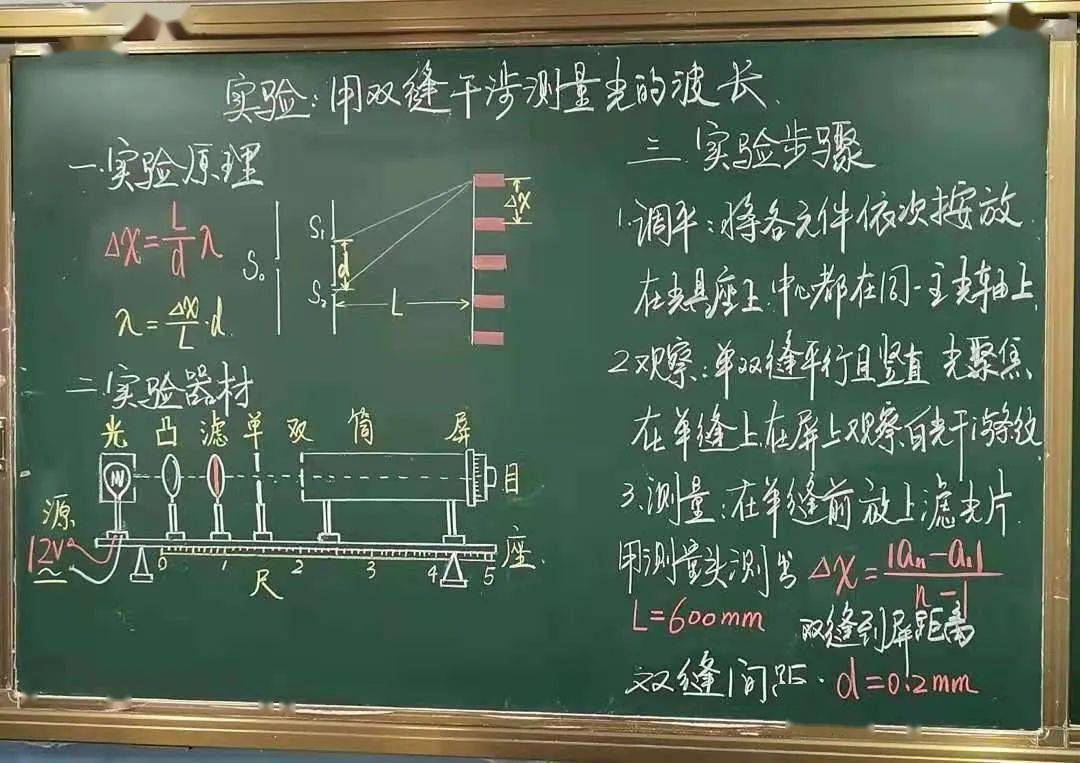 实验:用双缝干涉测量光的波长.
一.实验原理
Δx=L/d λ
λ=Δx/L·d
S₀
S₁
S₂
d
L
Δx
二.实验器材
光 凸 滤 单 双 筒 屏
目
源
12V
~
座.
0 1 2 3 4 5
尺
三.实验步骤
1.调平:将各元件依次按放
在光具座上.中心都在同一主光轴上.
2.观察:单双缝平行且竖直 光聚焦
在单缝上在屏上观察白光干涉条纹.
3.测量:在单缝前放上滤光片.
用测量头测出 Δx=|aₙ-a₁|/n-1
L=600mm 双缝到屏距离
双缝间距. d=0.2mm